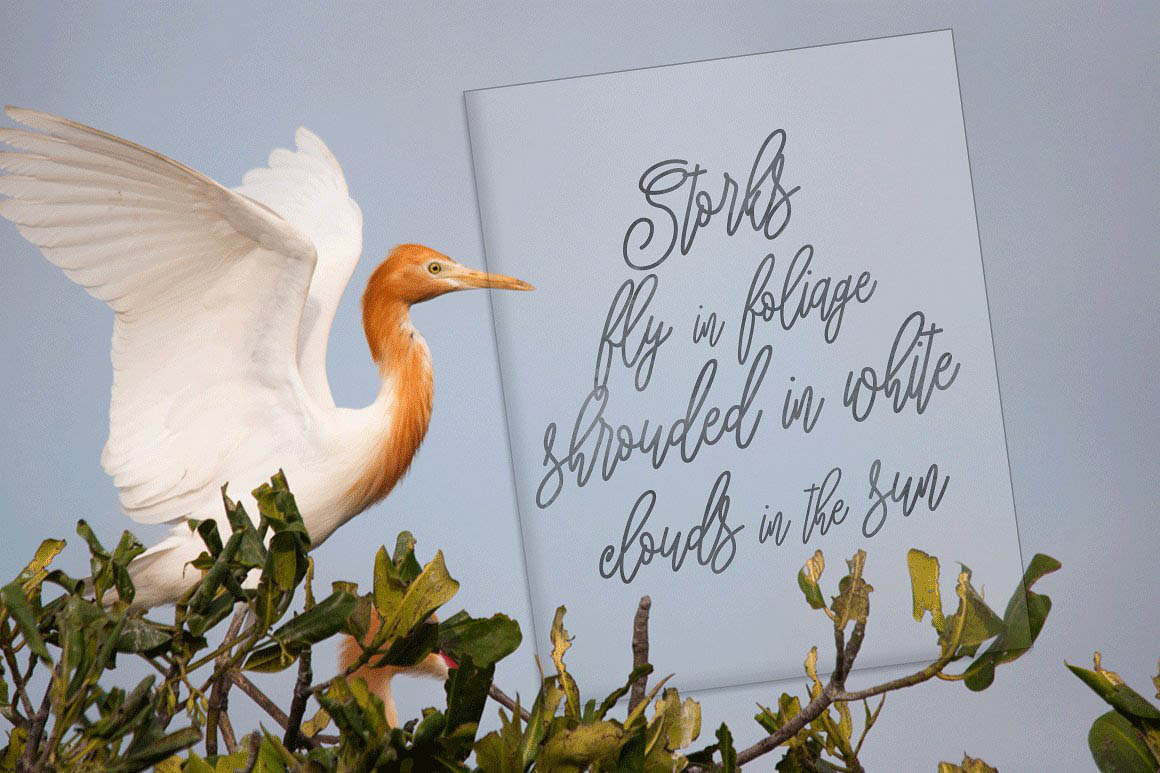 Storks
fly in foliage
shrouded in white
clouds in the sun